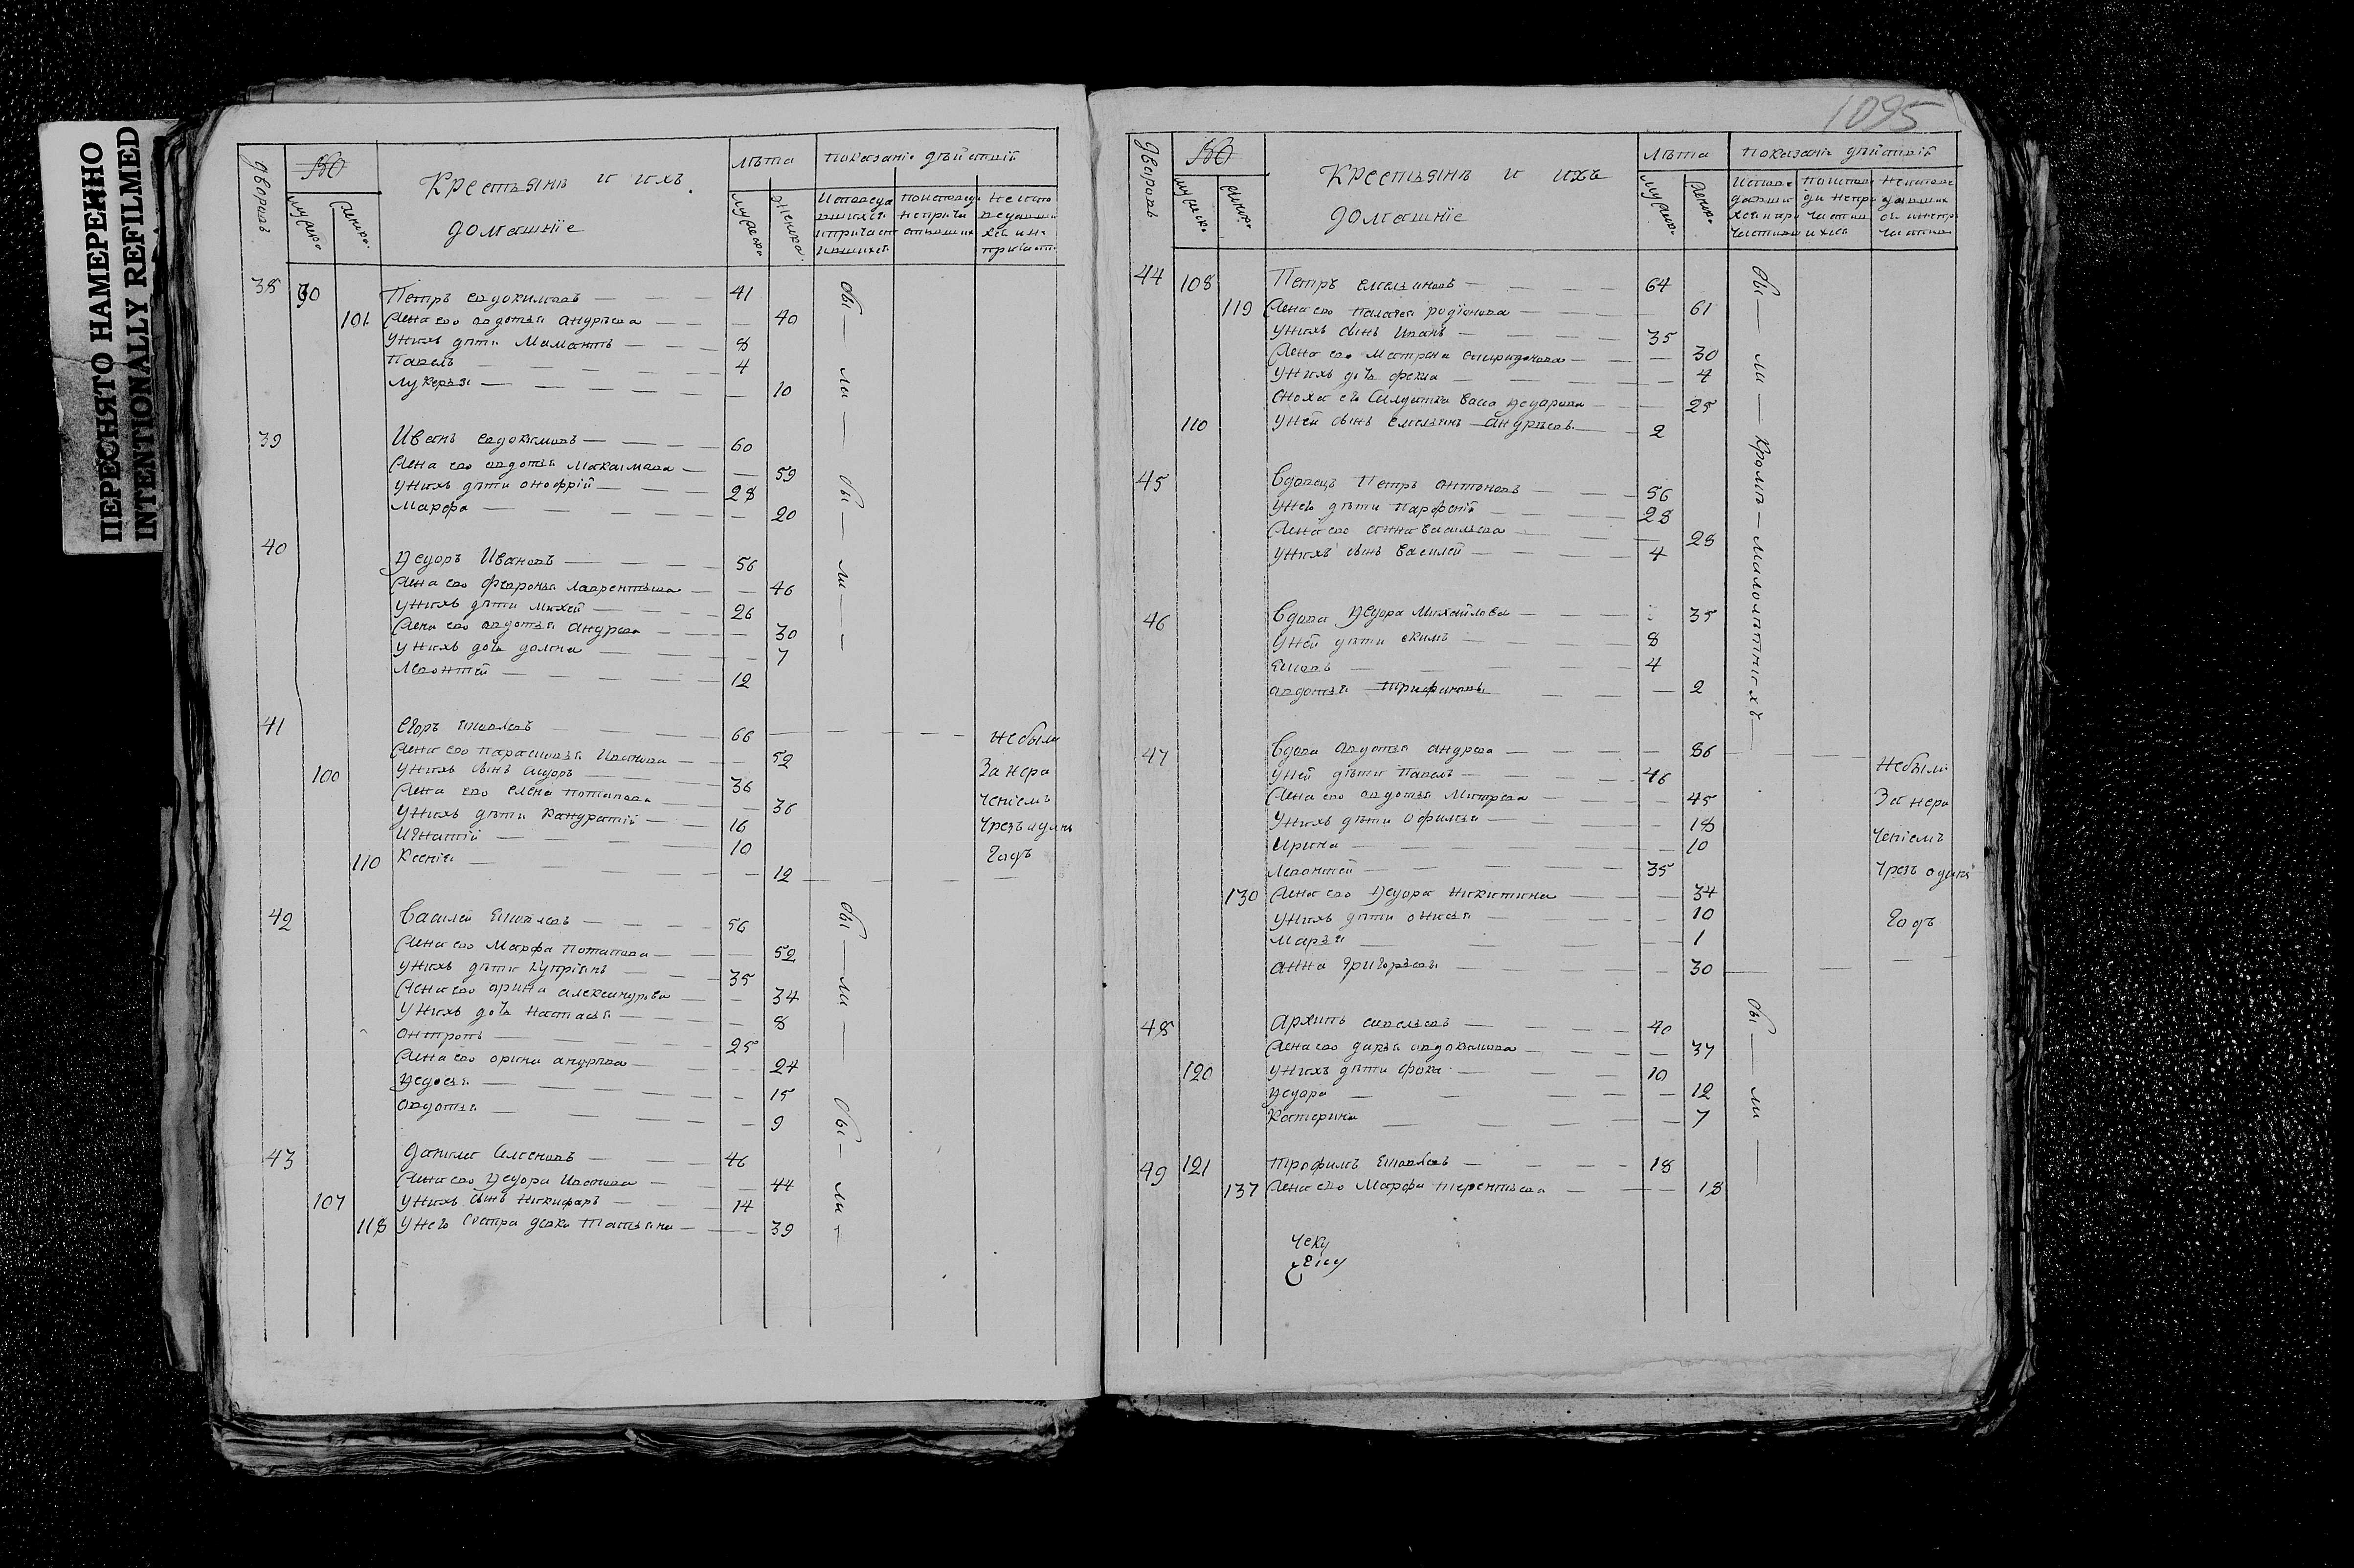 ПЕРЕСНЯТО НАМЕРЕННО
INTENTIONALLY REFILMED
дворовъ
мужска
женска
Крестьянъ и ихъ
домашніе
лѣта
мужеска
женска
показаніе дѣйствій
38 90 Петръ евдокимовъ — 41
101 жена ево авдотья андрѣева — 40
у нихъ дѣти Мамантъ — 8
Павелъ — 4
лукерья — 10
39 Иванъ евдокимовъ — 60
жена ево авдотья Макаимова — 59
у нихъ дѣти онофрій — 28
Марфа — 20
40 Ѳедоръ Ивановъ — 56
жена ево февронья лаврентьева — 46
у нихъ дѣти михей — 26
жена ево авдотья андрева — 30
у нихъ дочь домна — 7
Леонтей — 12
бы — ли — бы — ли —
41 егоръ — 66 — не были
жена ево парасковья Иванова — 52
100 у нихъ сынъ — 36 За нера
жена ево елена потапова — 36 ченіемъ
у нихъ дѣти Кандратій — 16 чрезъ адинъ
Игнатій — 10 годъ
110 Ксенія — 12
42 Василей — 56
жена ево Марфа потапова — 52
у нихъ дѣти купріянъ — 35
жена ево арина александрова — 34
у нихъ дочь настасья — 8
антропъ — 25
жена ево орина андрѣева — 24
Ѳедосья — 15
авдотья — 9
43 данило Семеновъ — 46
жена ево Ѳедора Иванова — 44
107 у нихъ сынъ никифаръ — 14
118 у него сестра девка татьяна — 39
бы — ли — бы — ли —
1095
дворовъ
мужска
женск
Крестьянъ и ихъ
домашніе
лѣта
мужск
женск
показаніе дѣйствій
44 108 Петръ емельяновъ — 64
119 жена ево палагея родіонова — 61
у нихъ сынъ Иванъ — 35
жена ево матрена спиридонова — 30
у нихъ дочь фекла — 4
сноха его Салдатка васа Ѳедарова — 25
110 у ней сынъ емельянъ андрѣевъ — 2
45 Вдовецъ Петръ антоновъ — 56
у него дѣти парфеній — 28
жена ево анна васильева — 28
у нихъ сынъ василей — 4
46 Вдова Ѳедора михайлова — 35
у ней дѣти екимъ — 8
— 4
авдотья трифанова — 2
бы — ли — Кромѣ — малолѣтнихъ —
47 Вдова авдотья андрева — 86
у ней дѣти павелъ — 46 не были
жена ево авдотья митрева — 45 За нера
у нихъ дѣти офимья — 18
ирина — 10 ченіемъ
леонтей — 35 чрезъ одинъ
130 жена ево Ѳедора никитина — 34
у нихъ дѣти онисья — 10 годъ
марья — 1
анна григорьева — 30
48 архипъ савельевъ — 40
жена ево дарья авдокимова — 37
120 у нихъ дѣти фока — 10
Ѳедора — 12
Катерина — 7
49 121 трофимъ — 18
137 жена ево Марфа терентьева — 18
бы — ли —